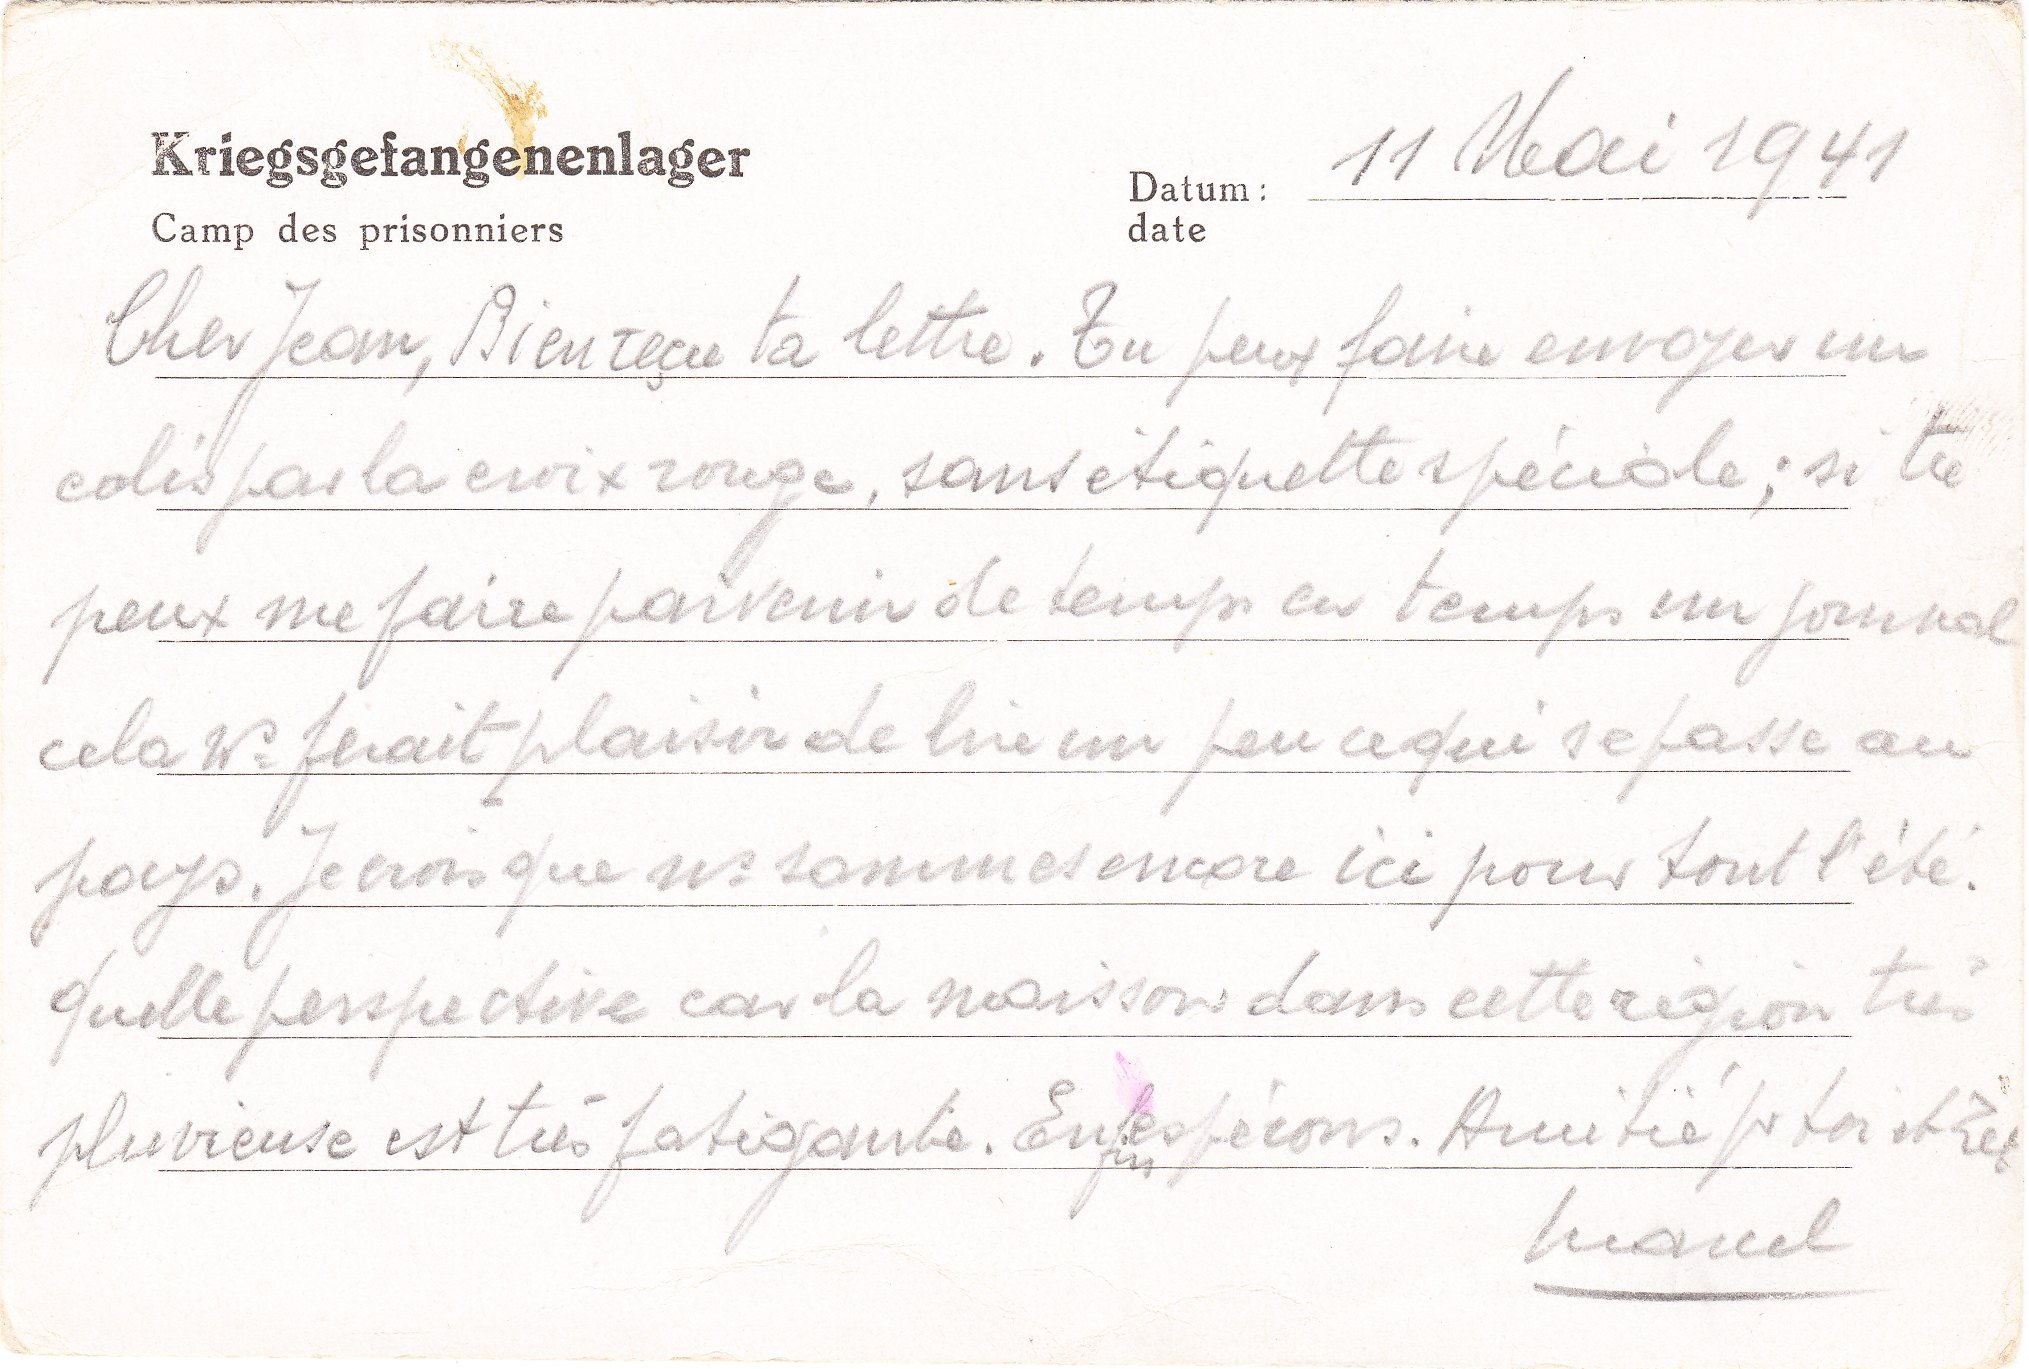 Kriegsgefangenenlager
Camp des prisonniers
Datum :
date
11 Mai 1941
Cher Jean, Bien reçu ta lettre. Tu peux faire envoyer un
colis par la croix rouge, sans étiquette spéciale ; si tu
peux me faire parvenir de temps en temps un journal
cela ns ferait plaisir de lire un peu ce qui se passe au
pays. Je crois que ns sommes encore ici pour tout l'été.
quelle perspective car la moisson dans cette région très
pluvieuse est très fatigante. Enfin espérons. Amitié pr toi et
Marcel